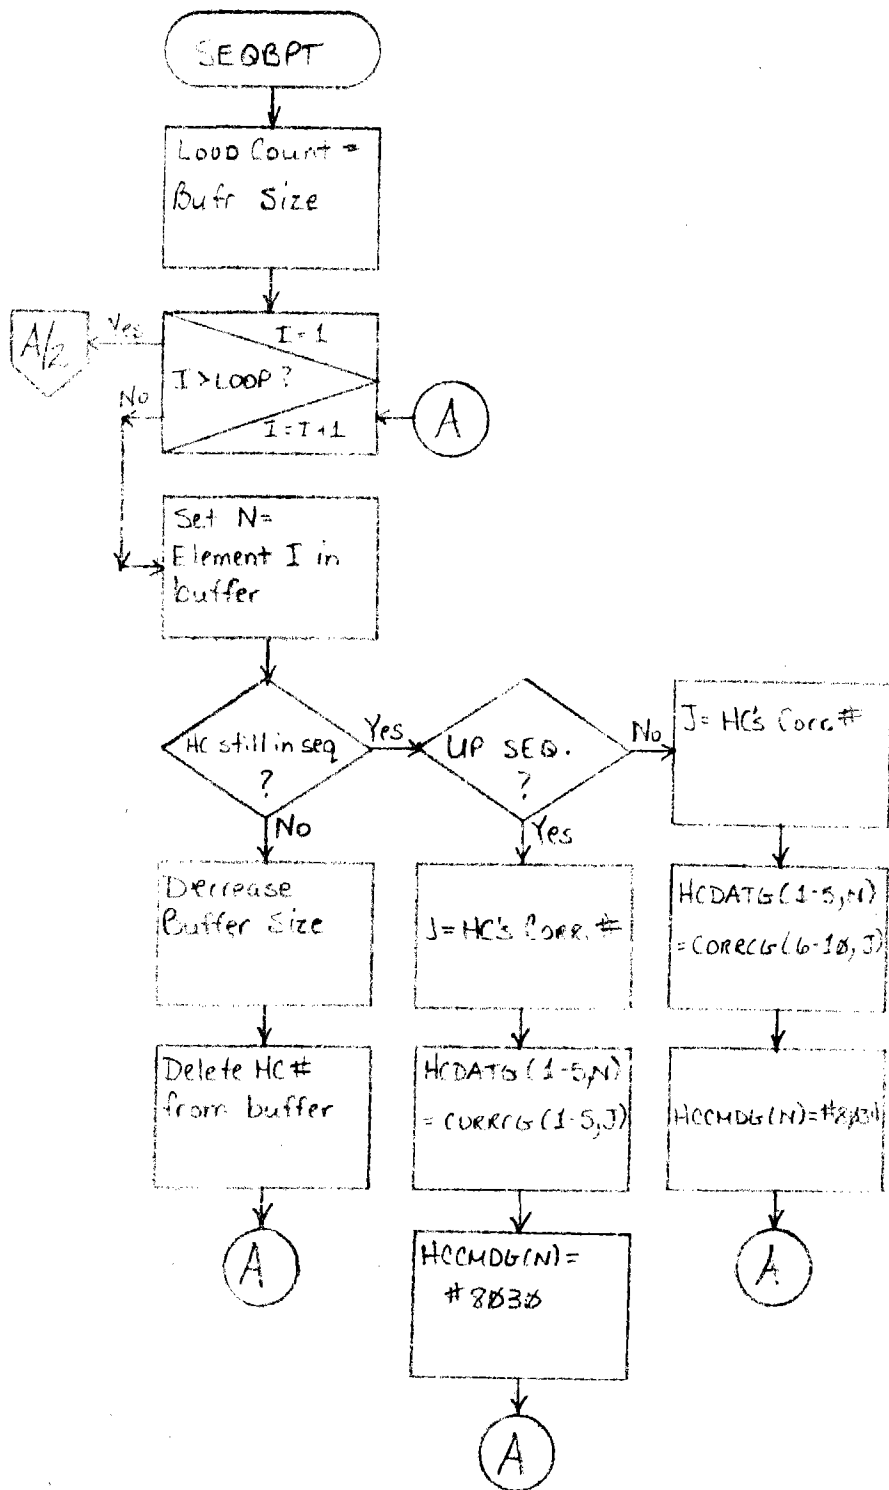 SEQBPT
Loop Count =
Bufr Size
I = 1
Yes
A/2
I > LOOP ?
No
I = I + 1
A
Set N =
Element I in
buffer
HC still in seq
?
Yes
UP SEQ.
?
No
J = HC's Corr. #
No
Yes
Decrease
Buffer Size
J = HC's CORR. #
HCDATG(1-5,N)
= CORRCG(6-10,J)
Delete HC #
from buffer
HCDATG(1-5,N)
= CORRCG(1-5,J)
HCCMDG(N)=
A
HCCMDG(N)=
#8030
A
A